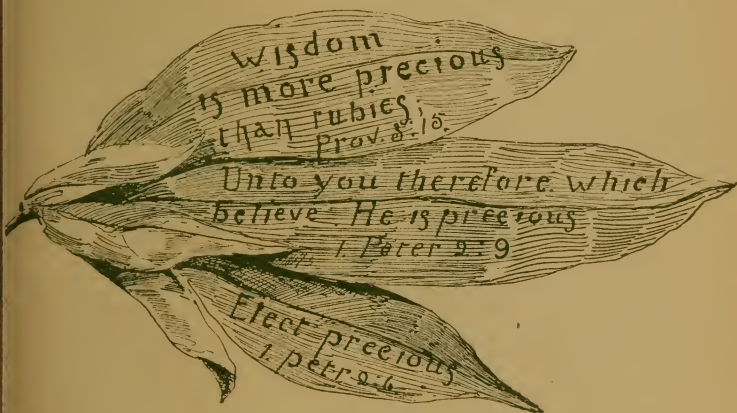 Wisdom
is more precious
than rubies;
Prov. 3:15.
Unto you therefore which
believe He is precious
1. Peter 2:9
Elect precious
1. petr 2:6